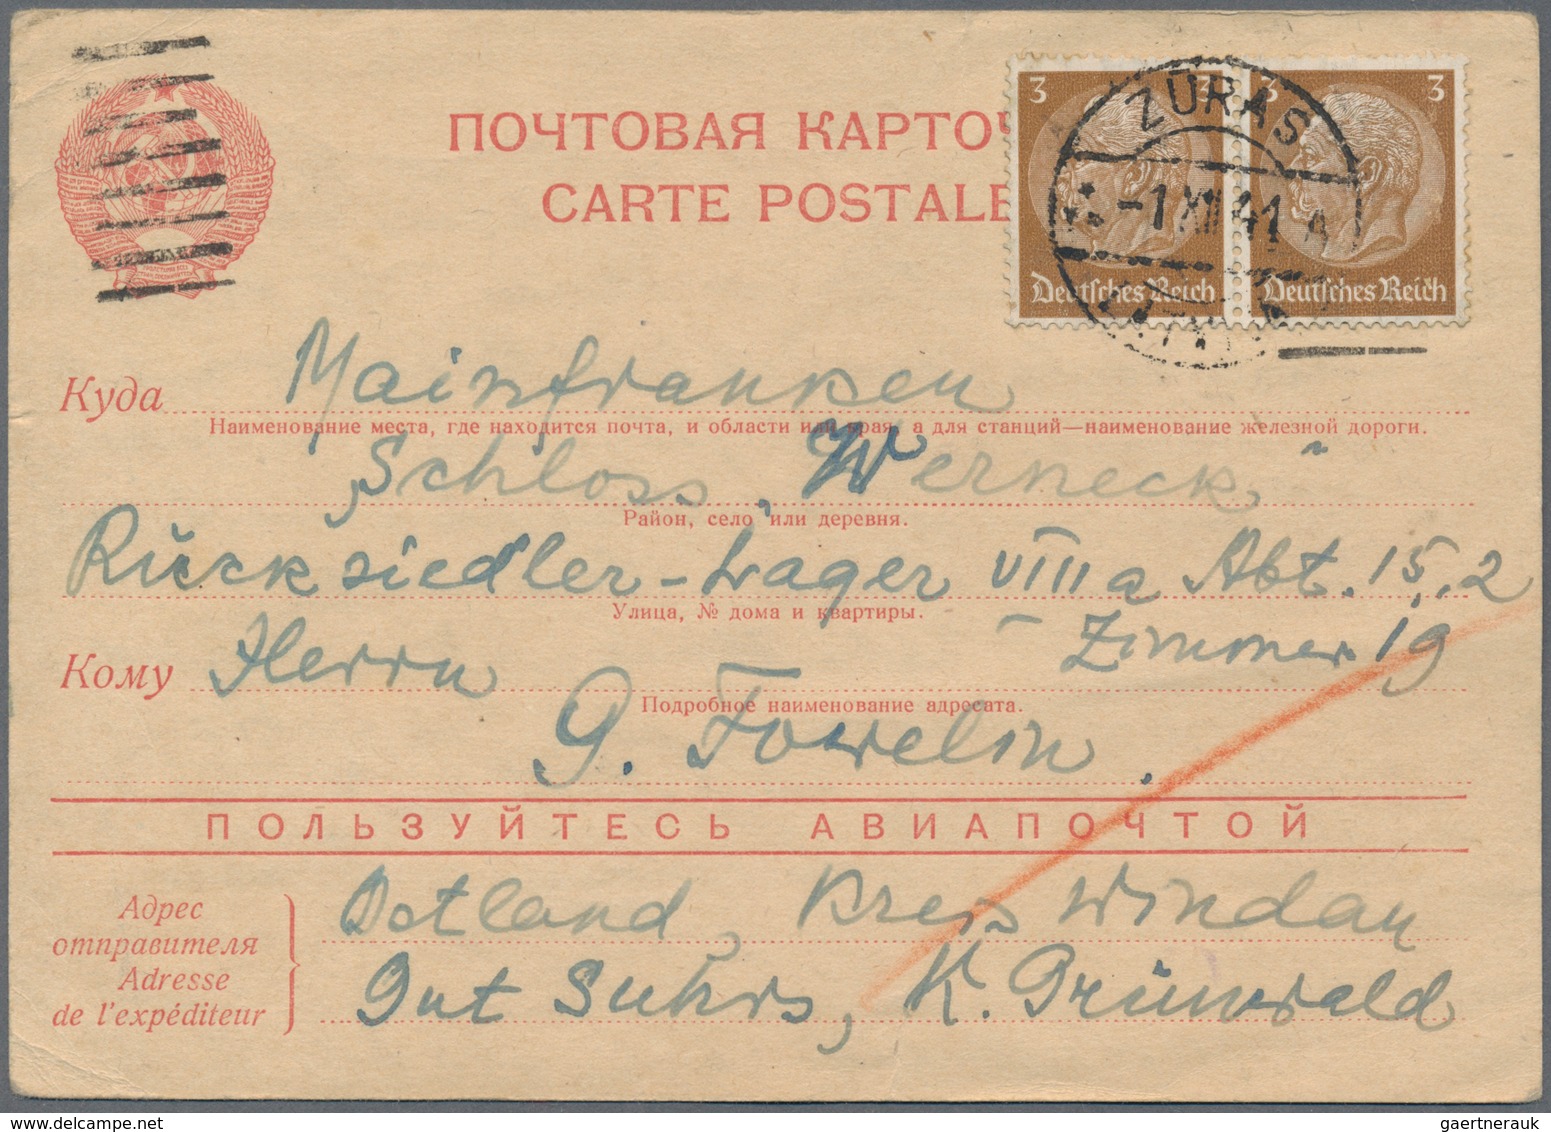 ПОЧТОВАЯ КАРТОЧ
CARTE POSTALE
3 3
3 3
Deutsches Reich Deutsches Reich
ZŪRAS
-1 XII 41 A
Куда Mainfranken
Наименование места, где находится почта, и области или края, а для станций—наименование железной дороги.
Schloss „Werneck"
Район, село или деревня.
Rücksiedler-Lager VIII a Abt. 15,2
Улица, № дома и квартиры.
Zimmer 19
Кому Herrn
Подробное наименование адресата.
G. Towelin.
ПОЛЬЗУЙТЕСЬ АВИАПОЧТОЙ
Адрес отправителя
Adresse de l'expéditeur
Ostland, Kreis Windau
Gut Suhrs, K. Grünwald
gaertnerauk